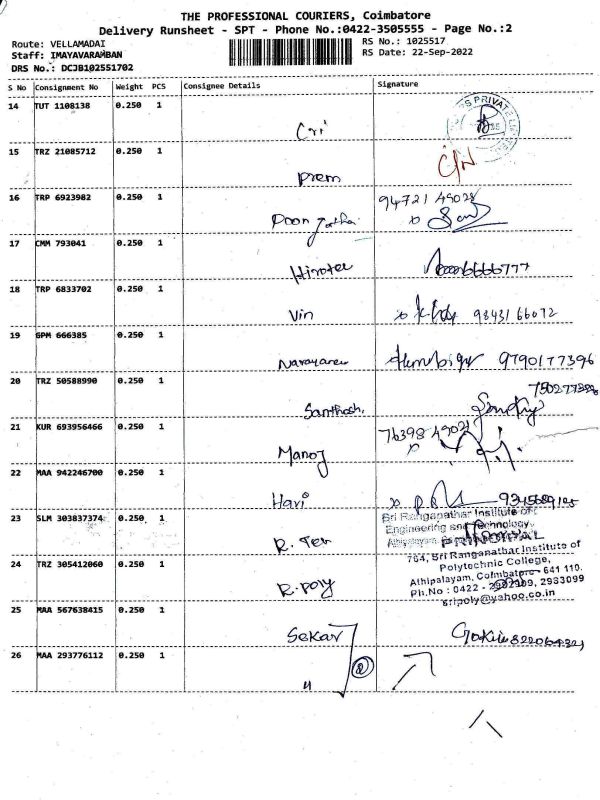 THE PROFESSIONAL COURIERS, Coimbatore
Delivery Runsheet - SPT - Phone No.:0422-3505555 - Page No.:2
Route: VELLAMADAI
Staff: IMAYAVARAMBAN
DRS No.: DCJB102551702
RS No.: 1025517
RS Date: 22-Sep-2022
S No Consignment No Weight PCS Consignee Details Signature
14 TUT 1108138 0.250 1
15 TRZ 21085712 0.250 1 Prem C/N
16 TRP 6923982 0.250 1 94721 49028
17 CMM 793041 0.250 1
18 TRP 6833702 0.250 1 Vin 98431 66072
19 GPM 666385 0.250 1 9790177396
20 TRZ 50588990 0.250 1 Santhosh.
21 KUR 693956466 0.250 1 Manoj 76398 49021
22 MAA 942246700 0.250 1 Hari
23 SLM 303837374 0.250 1 Sri Ranganathar Institute of
Engineering and Technology,
PRINCIPAL
24 TRZ 305412060 0.250 1 R. Poly 764, Sri Ranganathar Institute of
Polytechnic College,
Athipalayam, Coimbatore - 641 110.
Ph.No : 0422 - 2982909, 2983099
sripoly@yahoo.co.in
25 MAA 567638415 0.250 1 Sekar
26 MAA 293776112 0.250 1 "
2